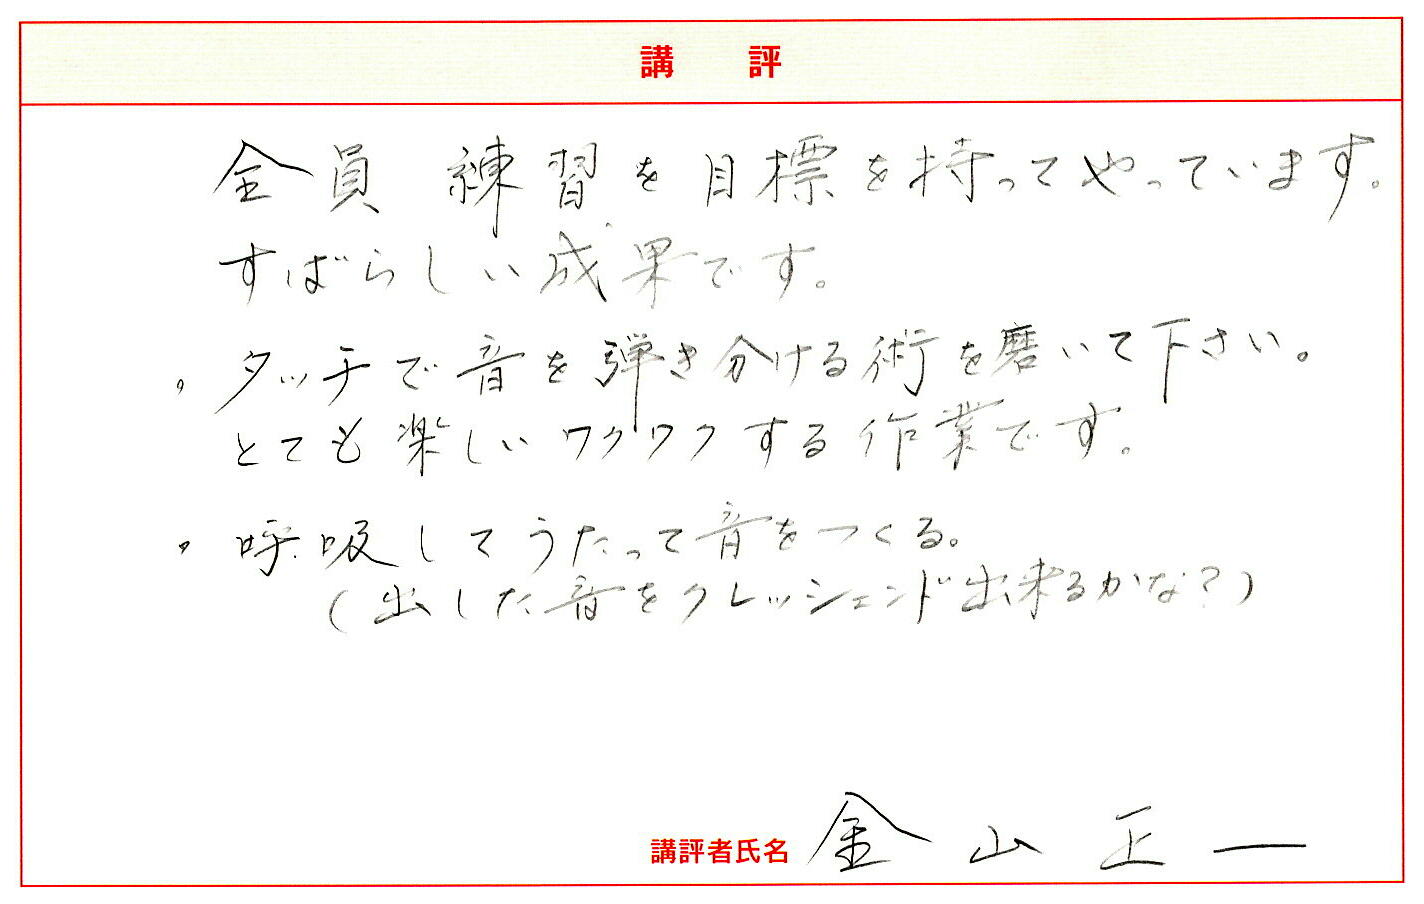 講　評
全員 練習を目標を持ってやっています。
すばらしい成果です。
・タッチで音を弾き分ける術を磨いて下さい。
とても楽しいワクワクする作業です。
・呼吸してうたって音をつくる。
(出した音をクレッシェンド出来るかな？)
講評者氏名 金山正一